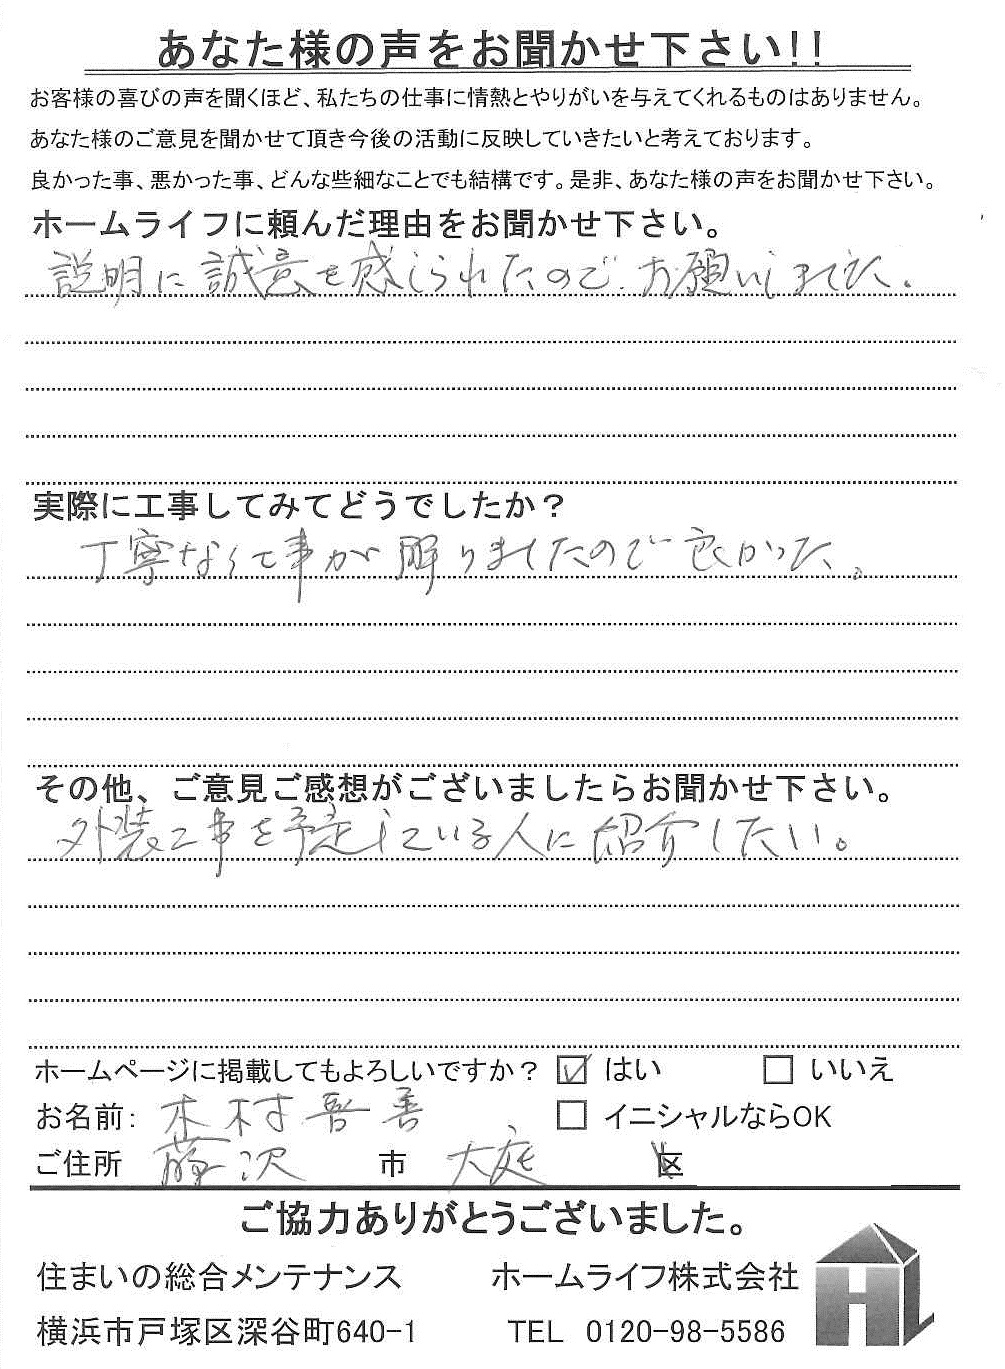 あなた様の声をお聞かせ下さい!!
お客様の喜びの声を聞くほど、私たちの仕事に情熱とやりがいを与えてくれるものはありません。
あなた様のご意見を聞かせて頂き今後の活動に反映していきたいと考えております。
良かった事、悪かった事、どんな些細なことでも結構です。是非、あなた様の声をお聞かせ下さい。
ホームライフに頼んだ理由をお聞かせ下さい。
説明に誠意を感じられたのでお願いしました。
実際に工事してみてどうでしたか?
丁寧な仕事が解りましたので良かった。
その他、ご意見ご感想がございましたらお聞かせ下さい。
外装工事を予定している人に紹介したい。
ホームページに掲載してもよろしいですか? ☑ はい □ いいえ
お名前: 木村 善 □ イニシャルならOK
ご住所 藤沢 市 大庭 区
ご協力ありがとうございました。
住まいの総合メンテナンス ホームライフ株式会社
横浜市戸塚区深谷町640-1 TEL 0120-98-5586
HL